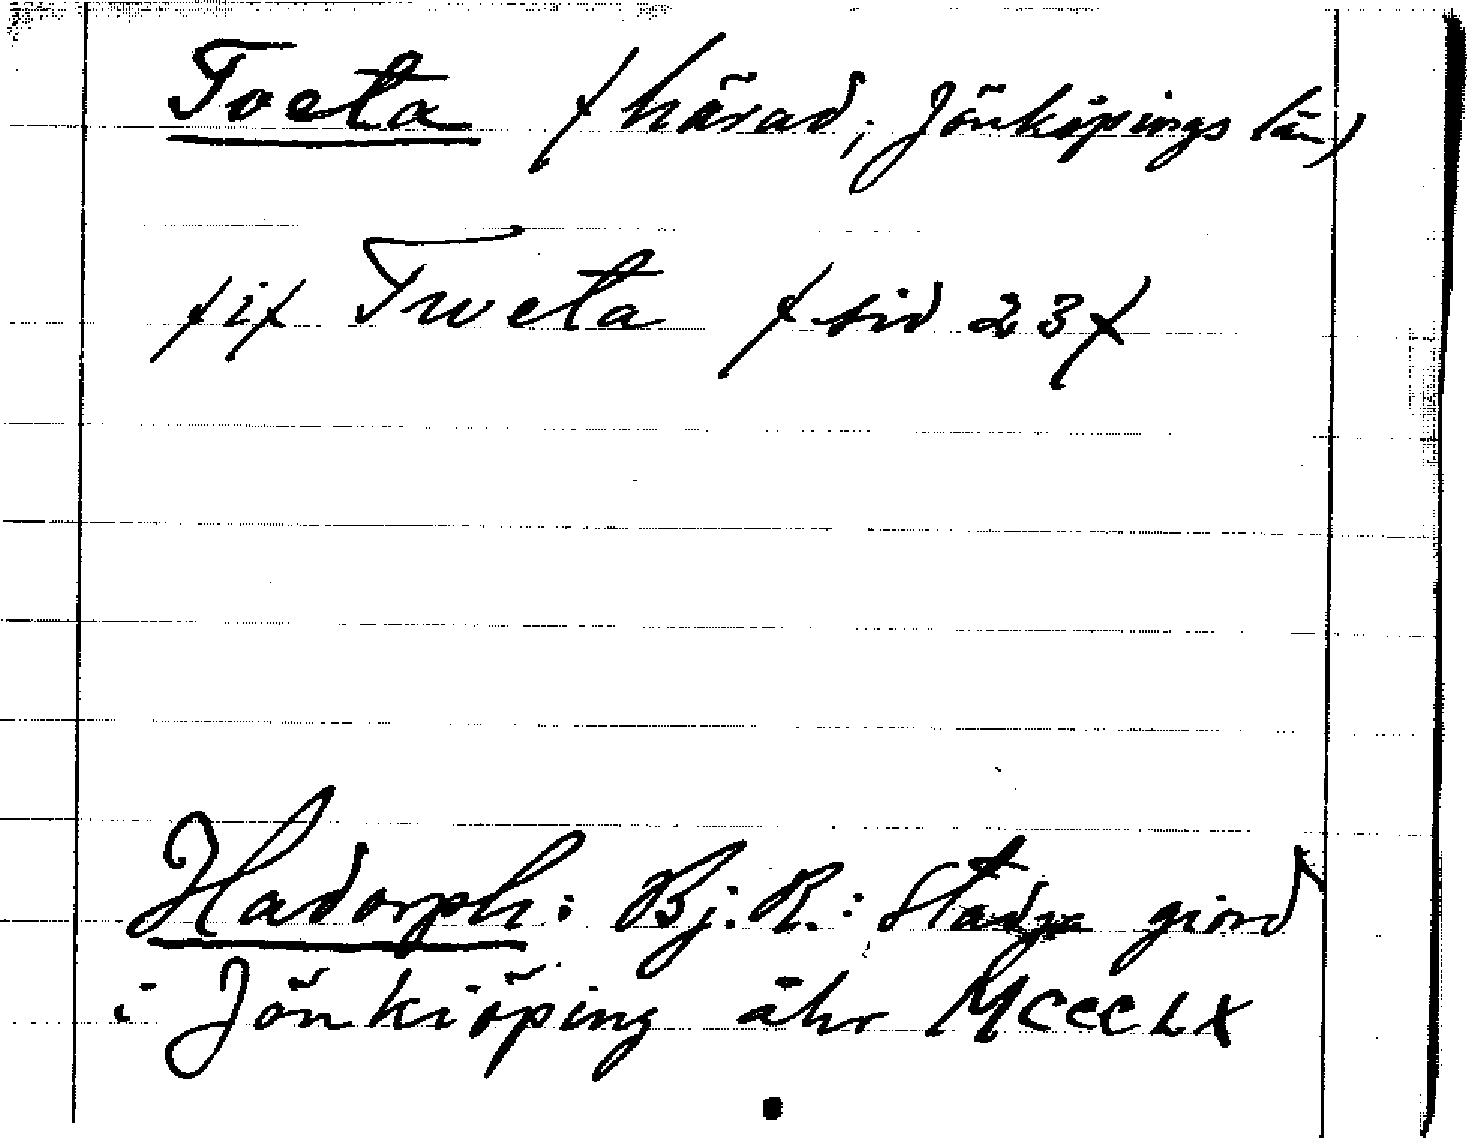 Tveta / härad, Jönköpings län)
/ i / Tweta / sid 23 /
Hadorph: Bj. R.: Stadga giord
i Jönkiöping åhr MCCCLX